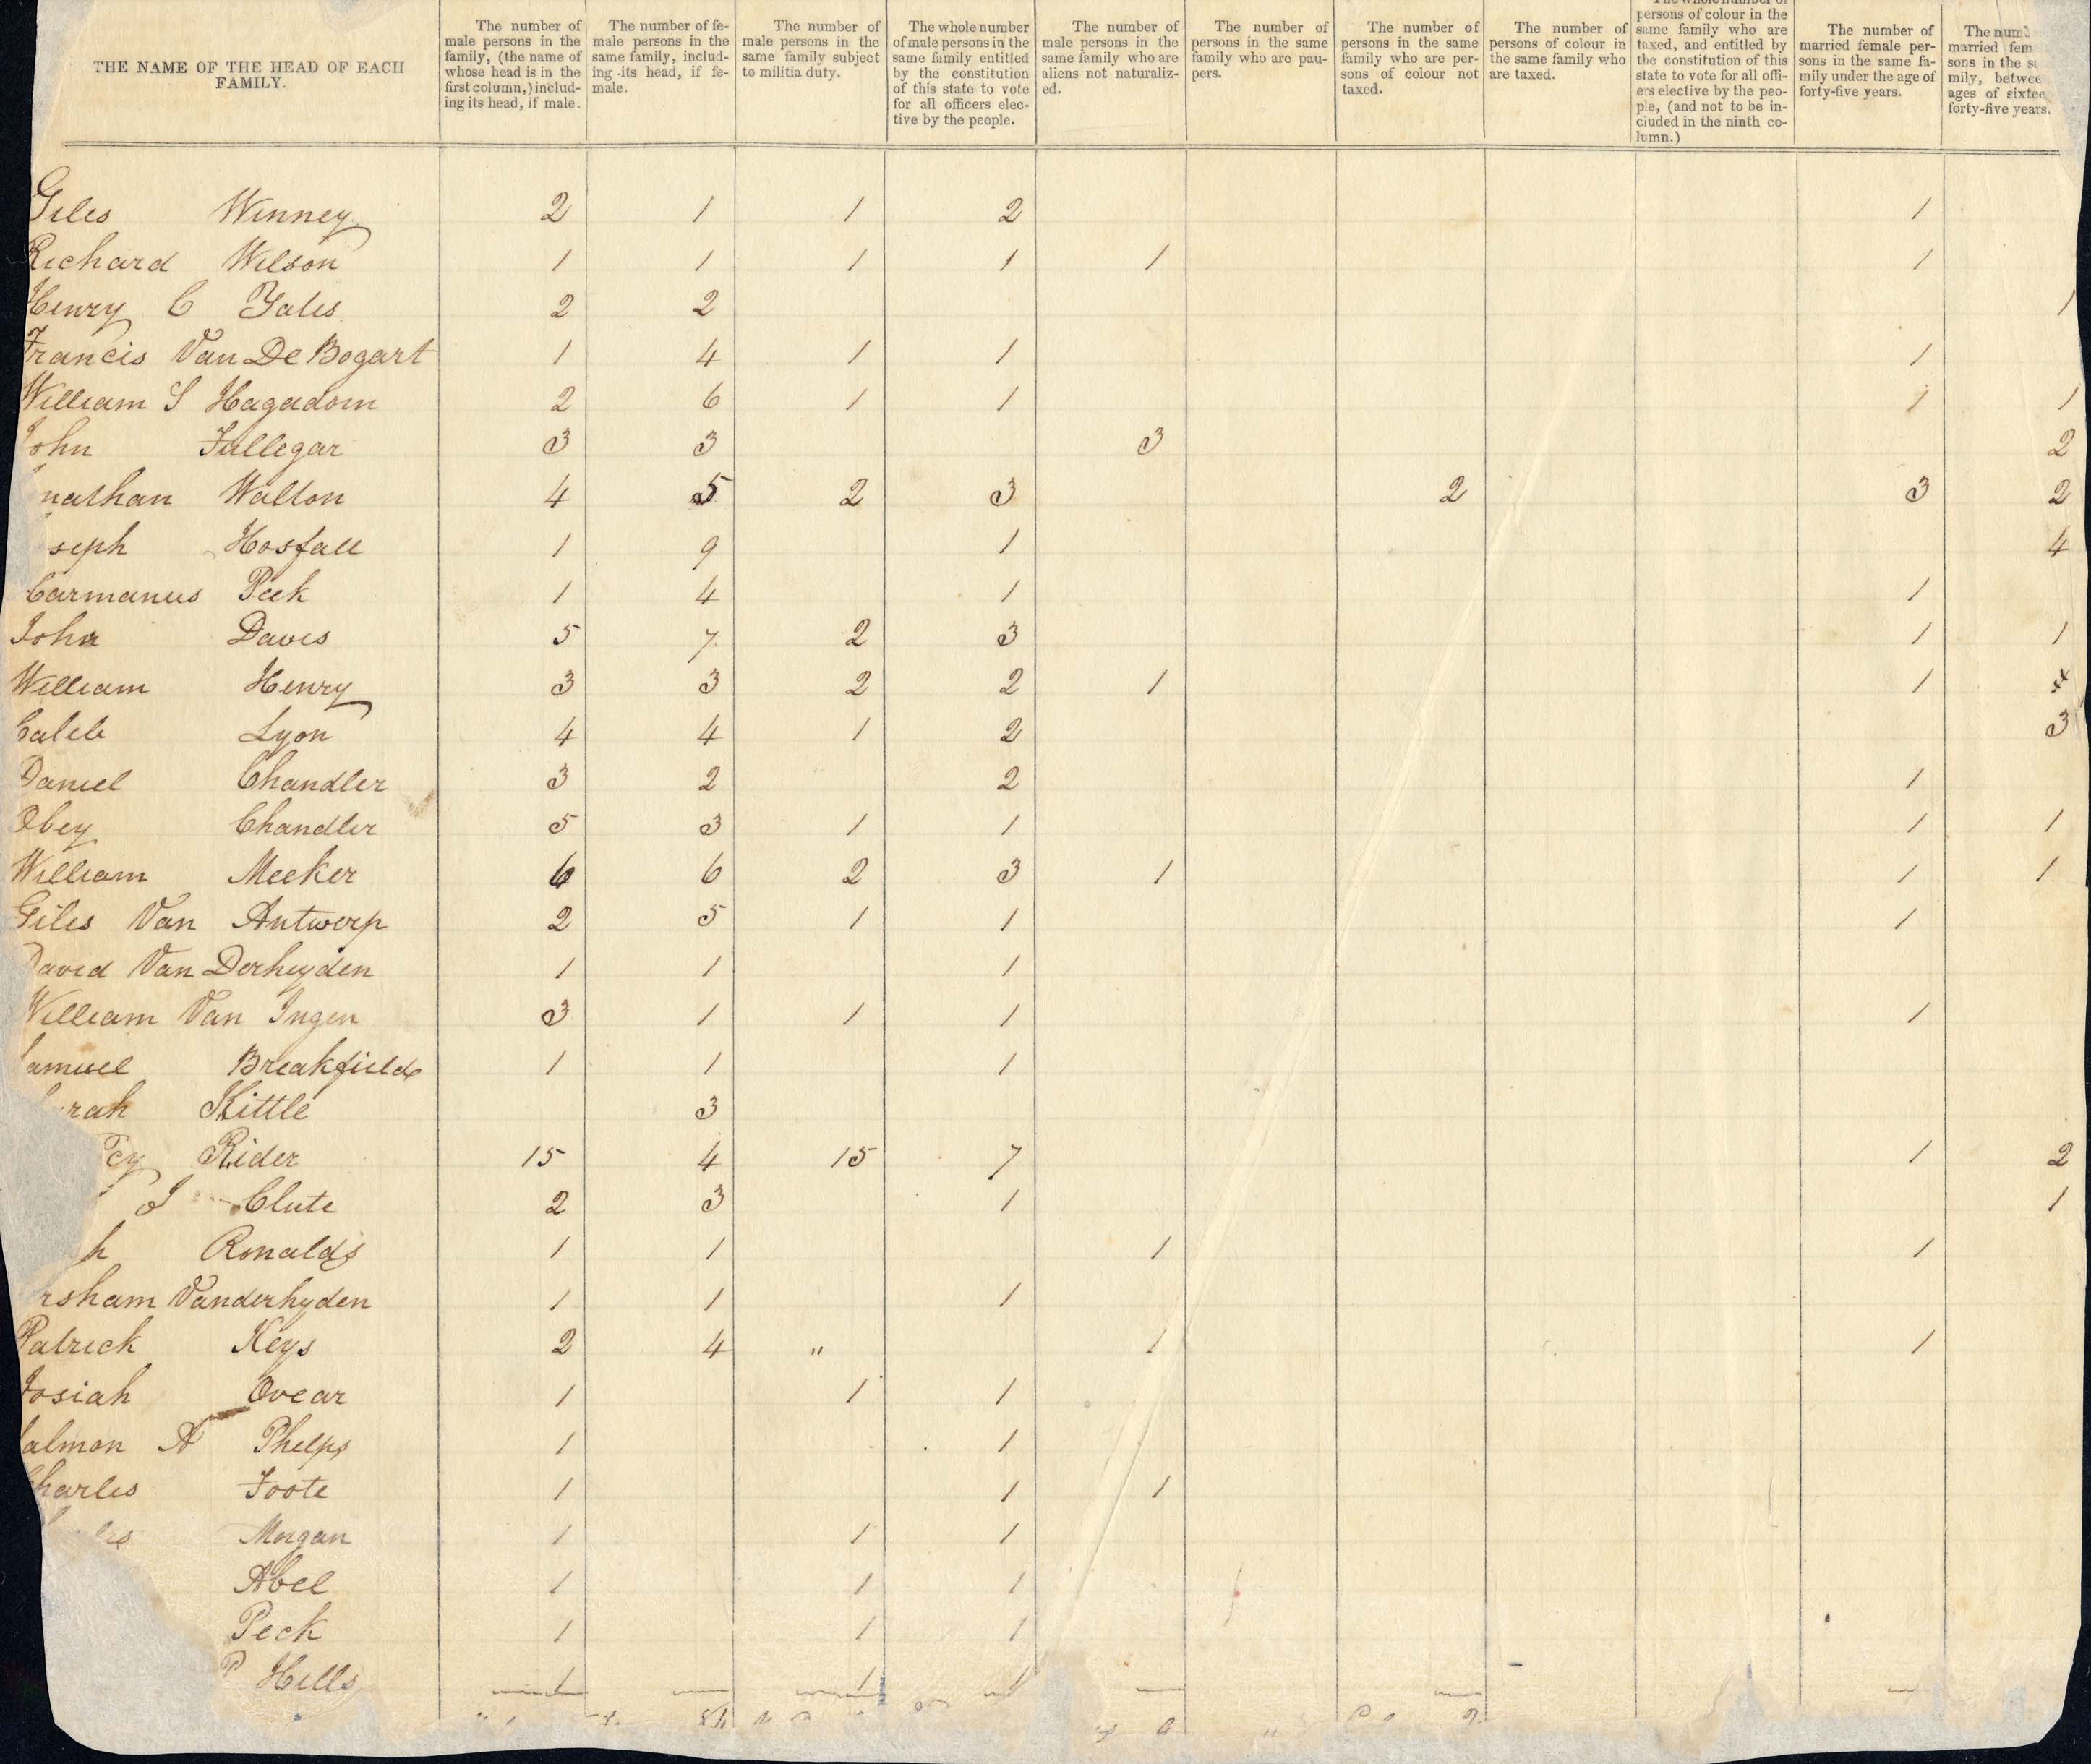 THE NAME OF THE HEAD OF EACH FAMILY.
The number of male persons in the family, (the name of whose head is in the first column,) including its head, if male.
The number of female persons in the same family, including its head, if female.
The number of male persons in the same family subject to militia duty.
The whole number of male persons in the same family entitled by the constitution of this state to vote for all officers elective by the people.
The number of male persons in the same family who are aliens not naturalized.
The number of persons in the same family who are paupers.
The number of persons in the same family who are persons of colour not taxed.
The number of persons of colour in the same family who are taxed.
The whole number of persons of colour in the same family who are taxed, and entitled by the constitution of this state to vote for all officers elective by the people, (and not to be included in the ninth column.)
The number of married female persons in the same family under the age of forty-five years.
The num married fem sons in the s mily, betwee ages of sixtee forty-five years.
Giles Winney 2 1 1 2 1
Richard Wilson 1 1 1 1 1 1
Henry C Yates 2 2 1
Francis Van De Bogart 1 4 1 1 1
William S Hagadorn 2 6 1 1 1 1
John Fullegar 3 3 3 2
nathan Walton 4 5 2 3 2 3 2
seph Hosfall 1 9 1 4
Carmanus Peek 1 4 1 1
John Davis 5 7 2 3 1 1
William Henry 3 3 2 2 1 1
Caleb Lyon 4 4 1 2 3
Daniel Chandler 3 2 2 1
Obey Chandler 5 3 1 1 1 1
William Meeker 6 6 2 3 1 1 1
Giles Van Antwerp 2 5 1 1 1
David Van Derheyden 1 1 1
William Van Ingen 3 1 1 1 1
amuel Breakfield 1 1 1
rah Kittle 3
ey Rider 15 4 15 7 1 2
J Clute 2 3 1 1
h Ronalds 1 1 1 1
rsham Vanderhyden 1 1 1
Patrick Keys 2 4 " 1 1
Josiah Ovear 1 1 1
almon A Phelps 1 1
Charles Foote 1 1 1
Morgan 1 1 1
Abel 1 1 1
Peck 1 1 1
P Hills 1 1 1